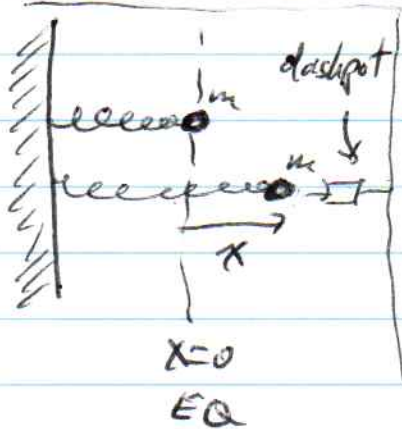 dashpot
m
m
x
x=0
EQ